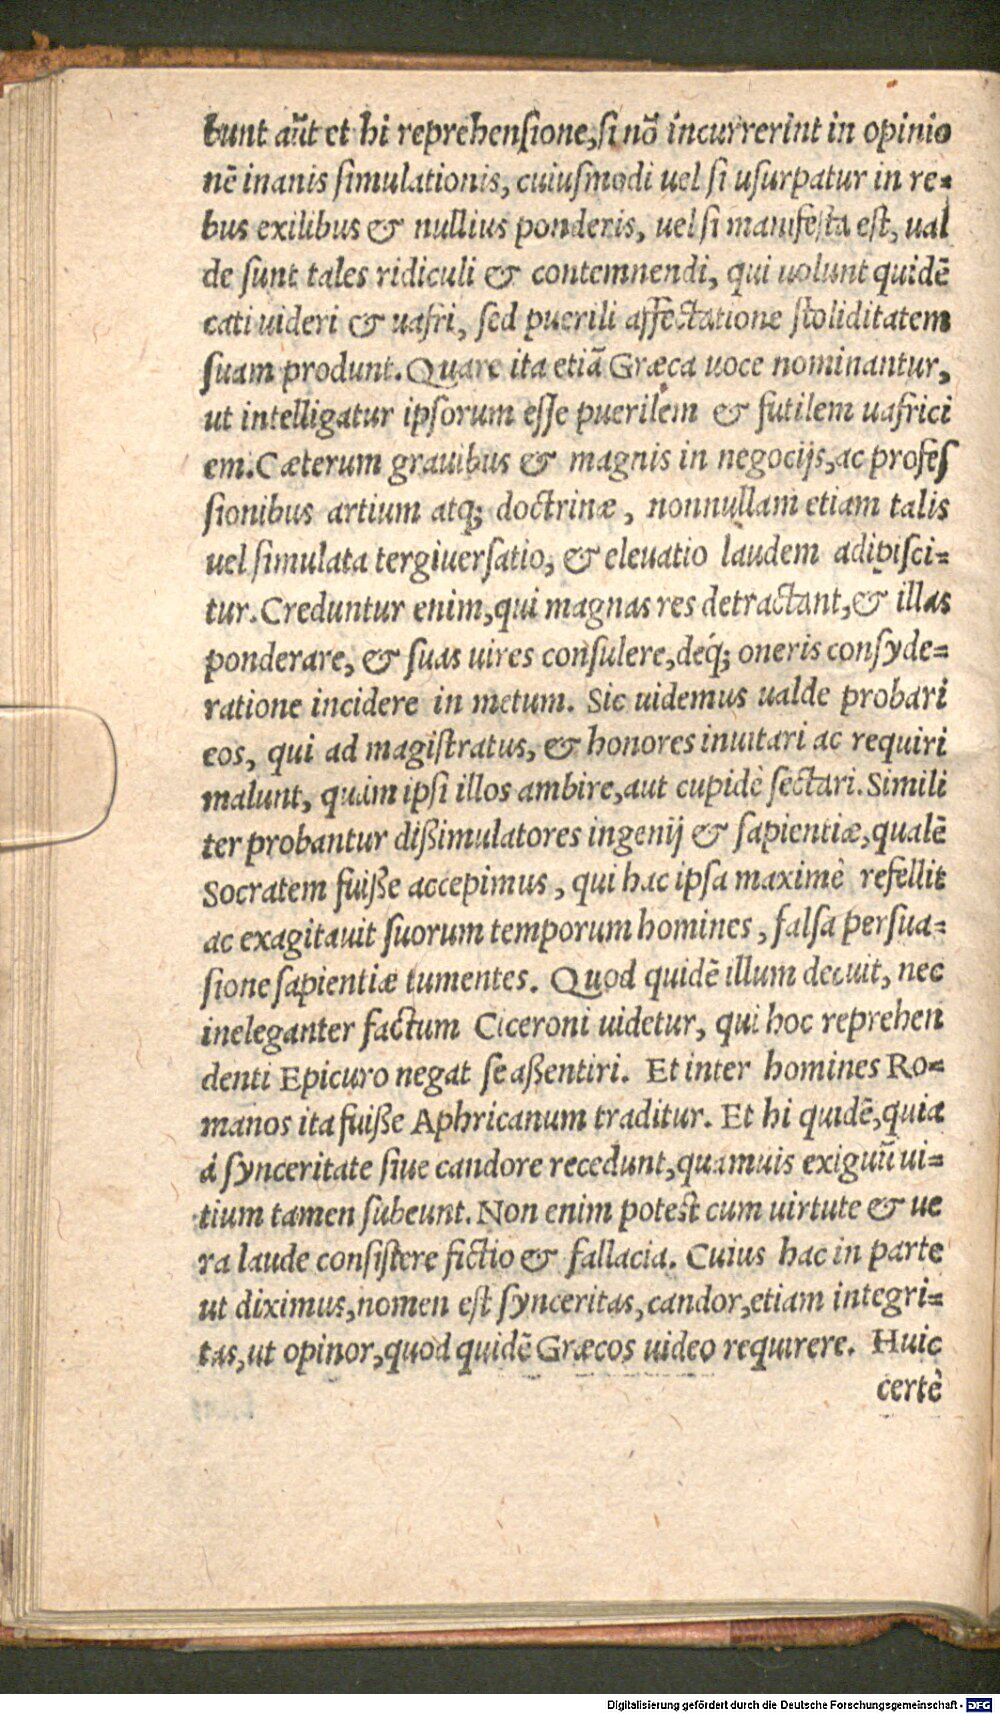 bunt aūt et hi reprehensione, si nō incurrerint in opinio
nē inanis simulationis, cuiusmodi uel si usurpatur in re-
bus exilibus & nullius ponderis, uel si manifesta est, ual
de sunt tales ridiculi & contemnendi, qui uolunt quidē
cati uideri & uafri, sed puerili affectatione stoliditatem
suam produnt. Quare ita etiā Græca uoce nominantur,
ut intelligatur ipsorum esse puerilem & futilem uafrici
em. Cæterum grauibus & magnis in negocijs, ac profes
sionibus artium atq; doctrinæ, nonnullam etiam talis
uel simulata tergiuersatio, & eleuatio laudem adipisci-
tur. Creduntur enim, qui magnas res detractant, & illas
ponderare, & suas uires consulere, deq́; oneris consyde-
ratione incidere in metum. Sic uidemus ualde probari
eos, qui ad magistratus, & honores inuitari ac requiri
malunt, quàm ipsi illos ambire, aut cupidè sectari. Simili
ter probantur dißimulatores ingenij & sapientiæ, qualē
Socratem fuiße accepimus, qui hac ipsa maximè refellit
ac exagitauit suorum temporum homines, falsa persua-
sione sapientiæ tumentes. Quod quidē illum decuit, nec
ineleganter factum Ciceroni uidetur, qui hoc reprehen
denti Epicuro negat se aßentiri. Et inter homines Ro-
manos ita fuiße Aphricanum traditur. Et hi quidē, quia
à synceritate siue candore recedunt, quamuis exiguū ui-
tium tamen subeunt. Non enim potest cum uirtute & ue
ra laude consistere fictio & fallacia. Cuius hac in parte
ut diximus, nomen est synceritas, candor, etiam integri-
tas, ut opinor, quod quidē Græcos uideo requirere. Huic
certè
Digitalisierung gefördert durch die Deutsche Forschungsgemeinschaft - DFG